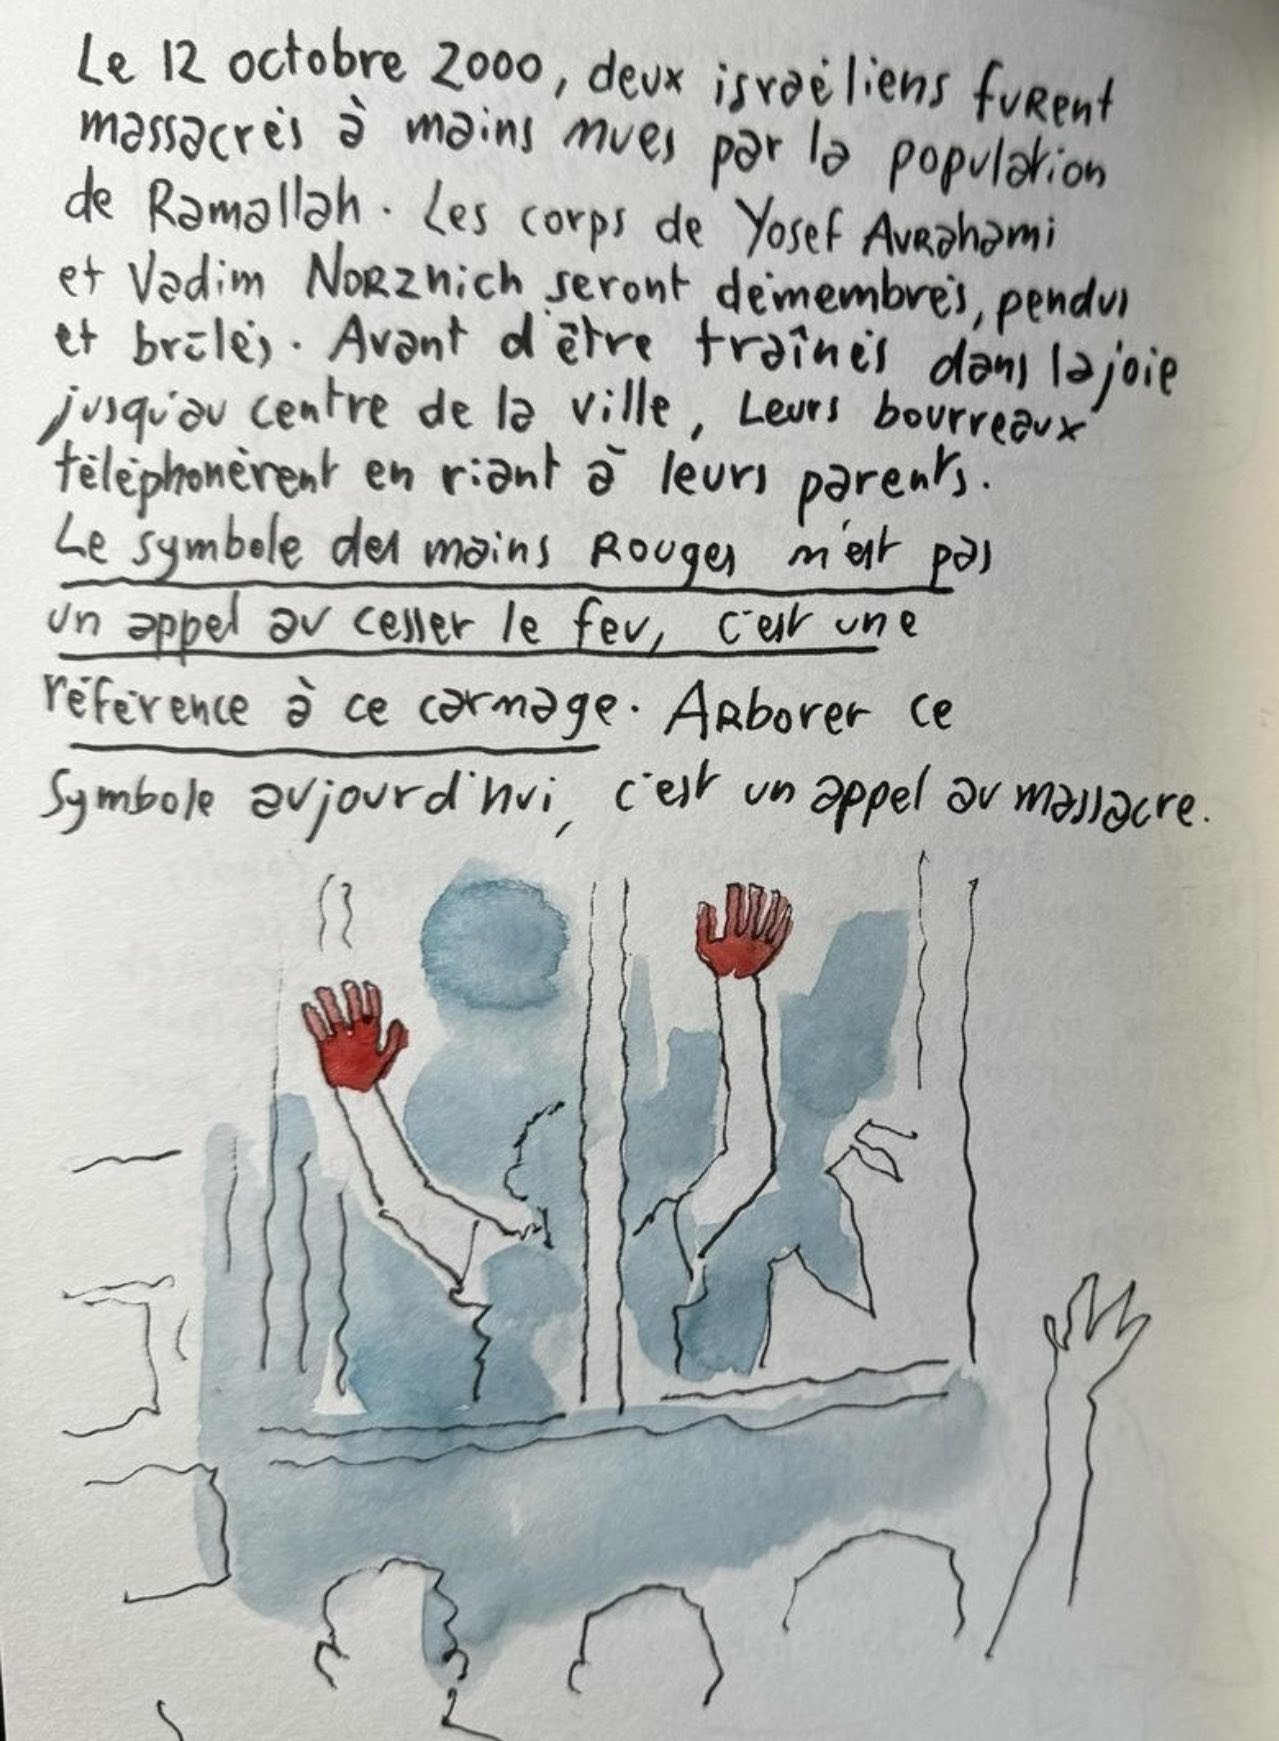 Le 12 octobre 2000, deux israéliens furent
massacrés à mains nues par la population
de Ramallah. Les corps de Yosef Avrahami
et Vadim Norznich seront démembrés, pendus
et brûlés. Avant d'être traînés dans la joie
jusqu'au centre de la ville, Leurs bourreaux
téléphonèrent en riant à leurs parents.
Le symbole des mains Rouges n'est pas
un appel au cesser le feu, c'est une
référence à ce carnage. Arborer ce
symbole aujourd'hui, c'est un appel au massacre.